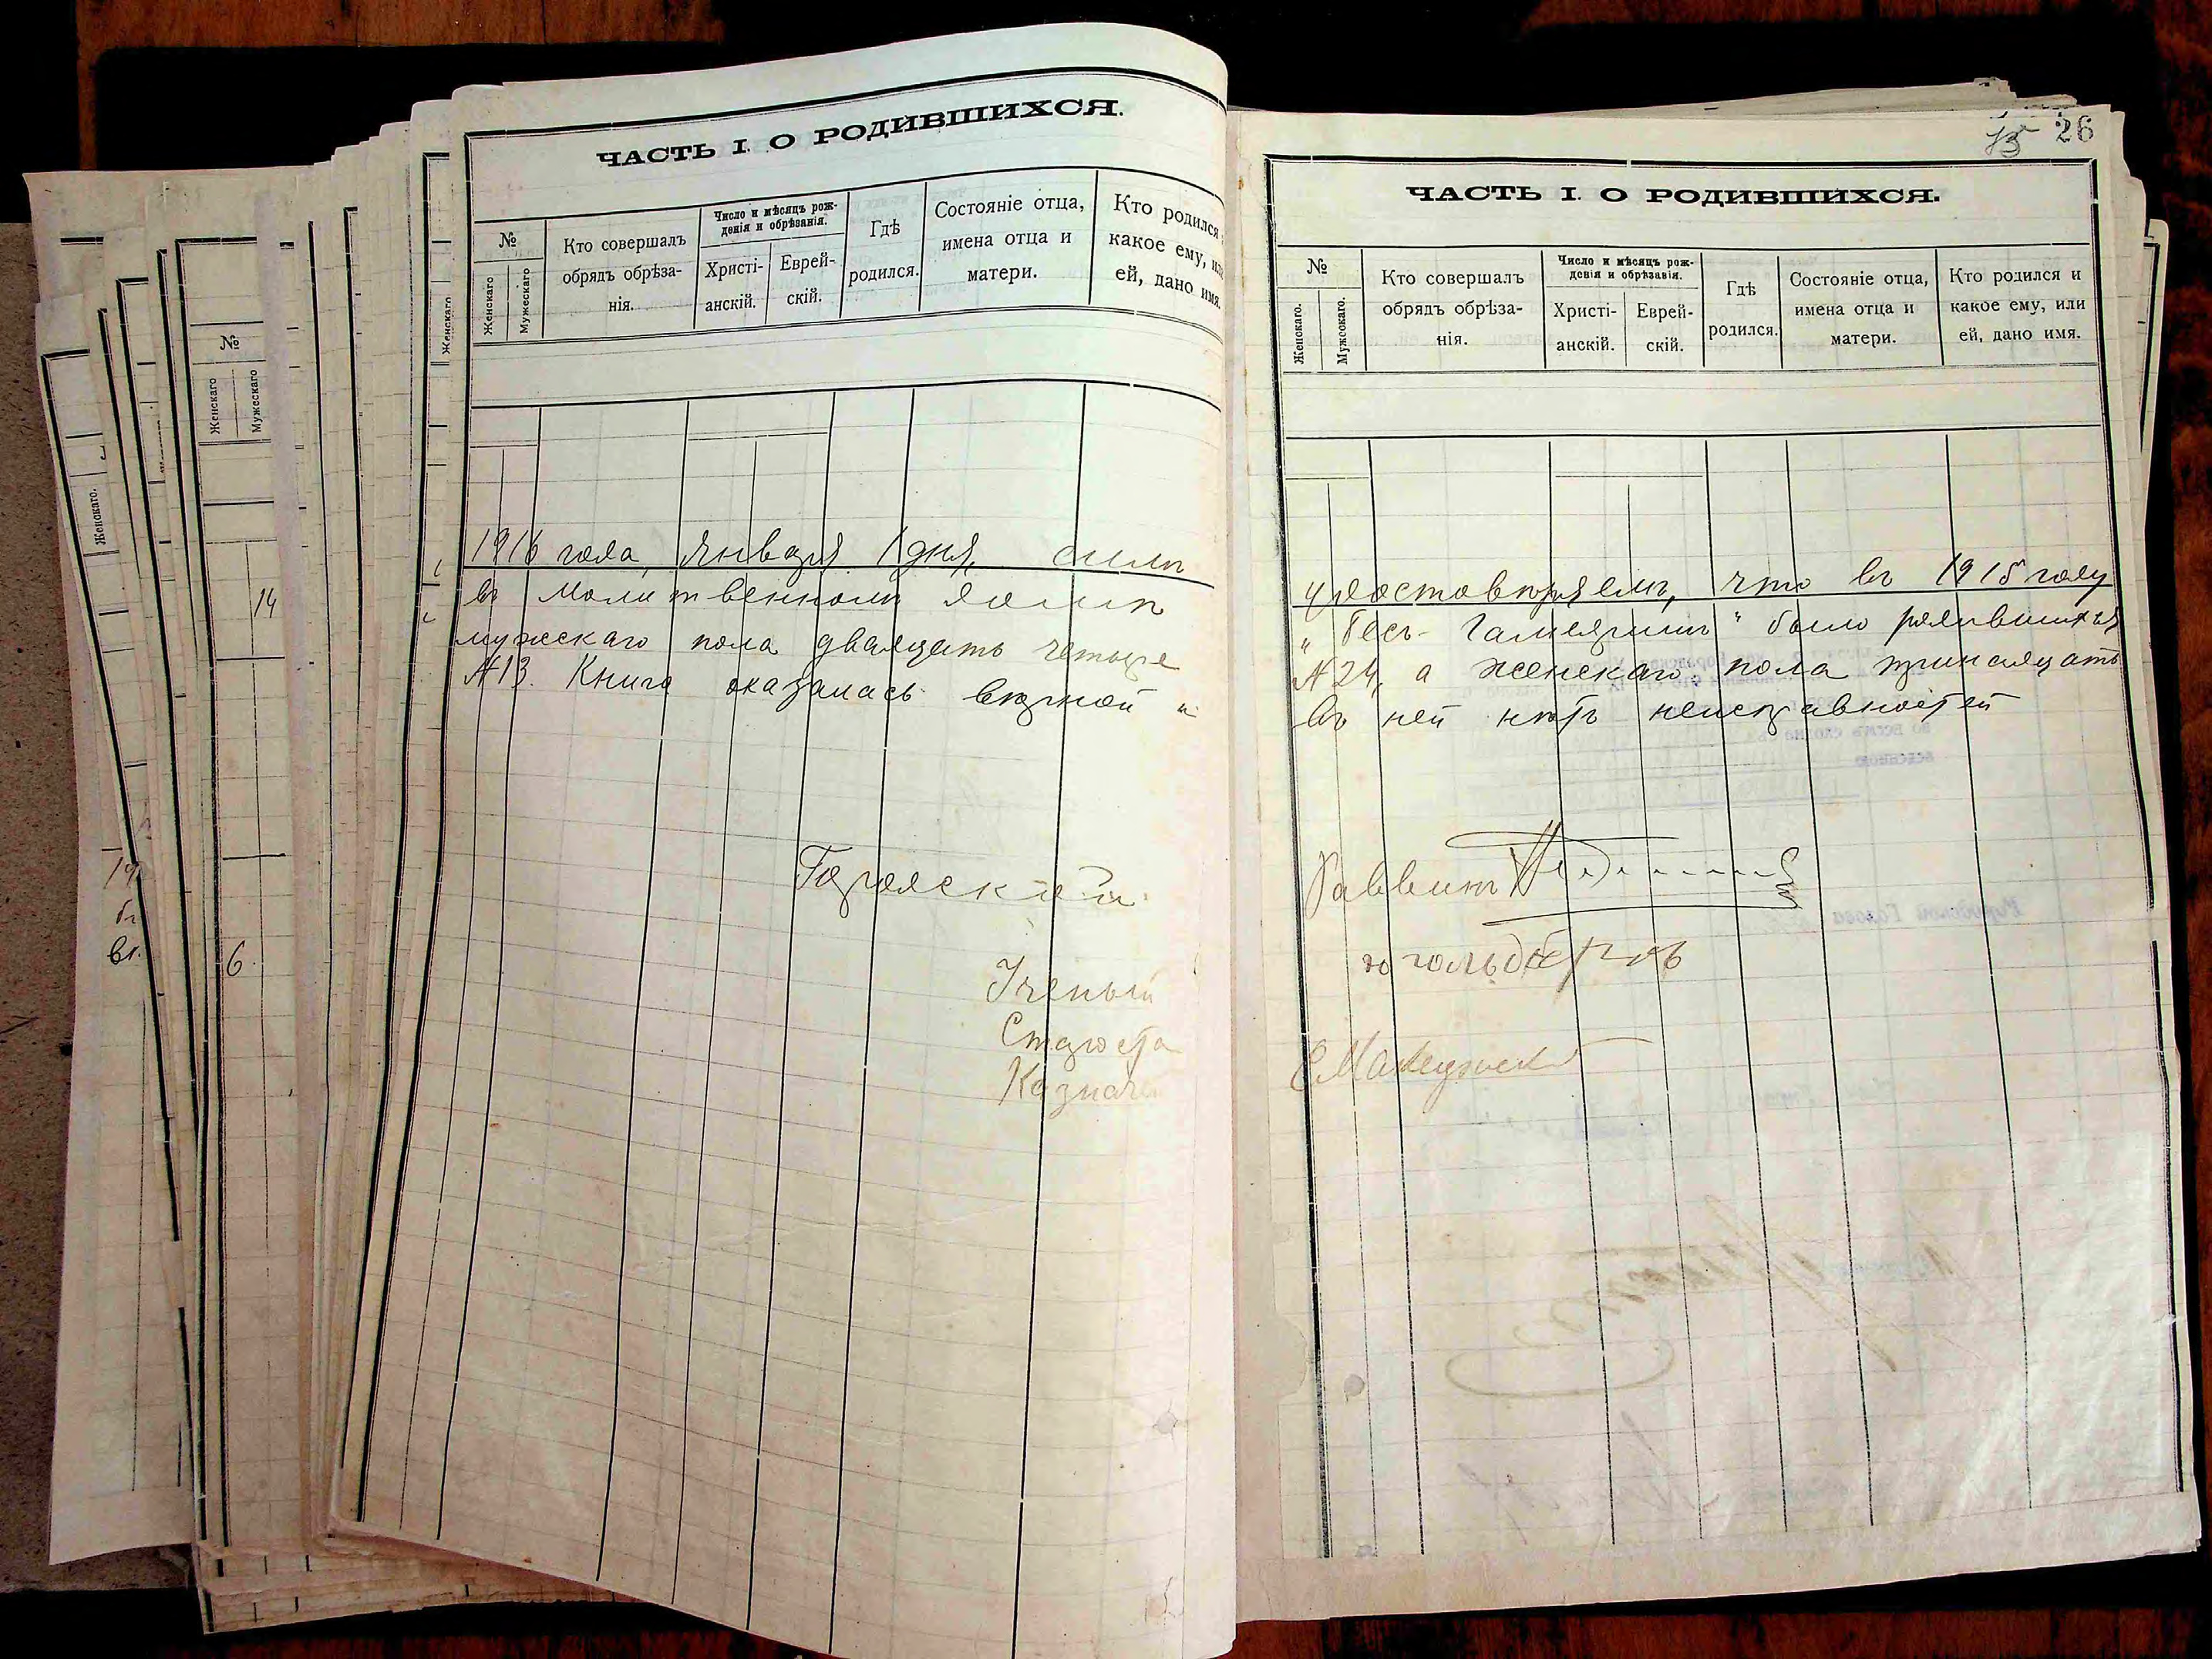 ЧАСТЬ I. О РОДИВШИХСЯ.
№
Женскаго
Мужескаго
Кто совершалъ
обрядъ обрѣза-
нія.
Число и мѣсяцъ рож-
денія и обрѣзанія.
Христі-
анскій.
Еврей-
скій.
Гдѣ
родился.
Состояніе отца,
имена отца и
матери.
Кто родился
какое ему, или
ей, дано имя.
1916 года, Января 1 дня, симъ
въ молитвенномъ домѣ
мужескаго пола двадцать четыре
№13. Книга оказалась вѣрной и
Городской
Ученый
Староста
Казначей
26
ЧАСТЬ I. О РОДИВШИХСЯ.
№
Женскаго.
Мужескаго.
Кто совершалъ
обрядъ обрѣза-
нія.
Число и мѣсяцъ рож-
денія и обрѣзанія.
Христі-
анскій.
Еврей-
скій.
Гдѣ
родился.
Состояніе отца,
имена отца и
матери.
Кто родился и
какое ему, или
ей, дано имя.
удостовѣряемъ, что въ 1915 году
"Бесъ-Гамедришъ" было родившихся
№24, а женскаго пола тринадцать
въ ней нѣтъ неисправностей
Раввинъ
гольдбергъ
№
Женскаго
Мужескаго
14
6
Женскаго.
Женскаго